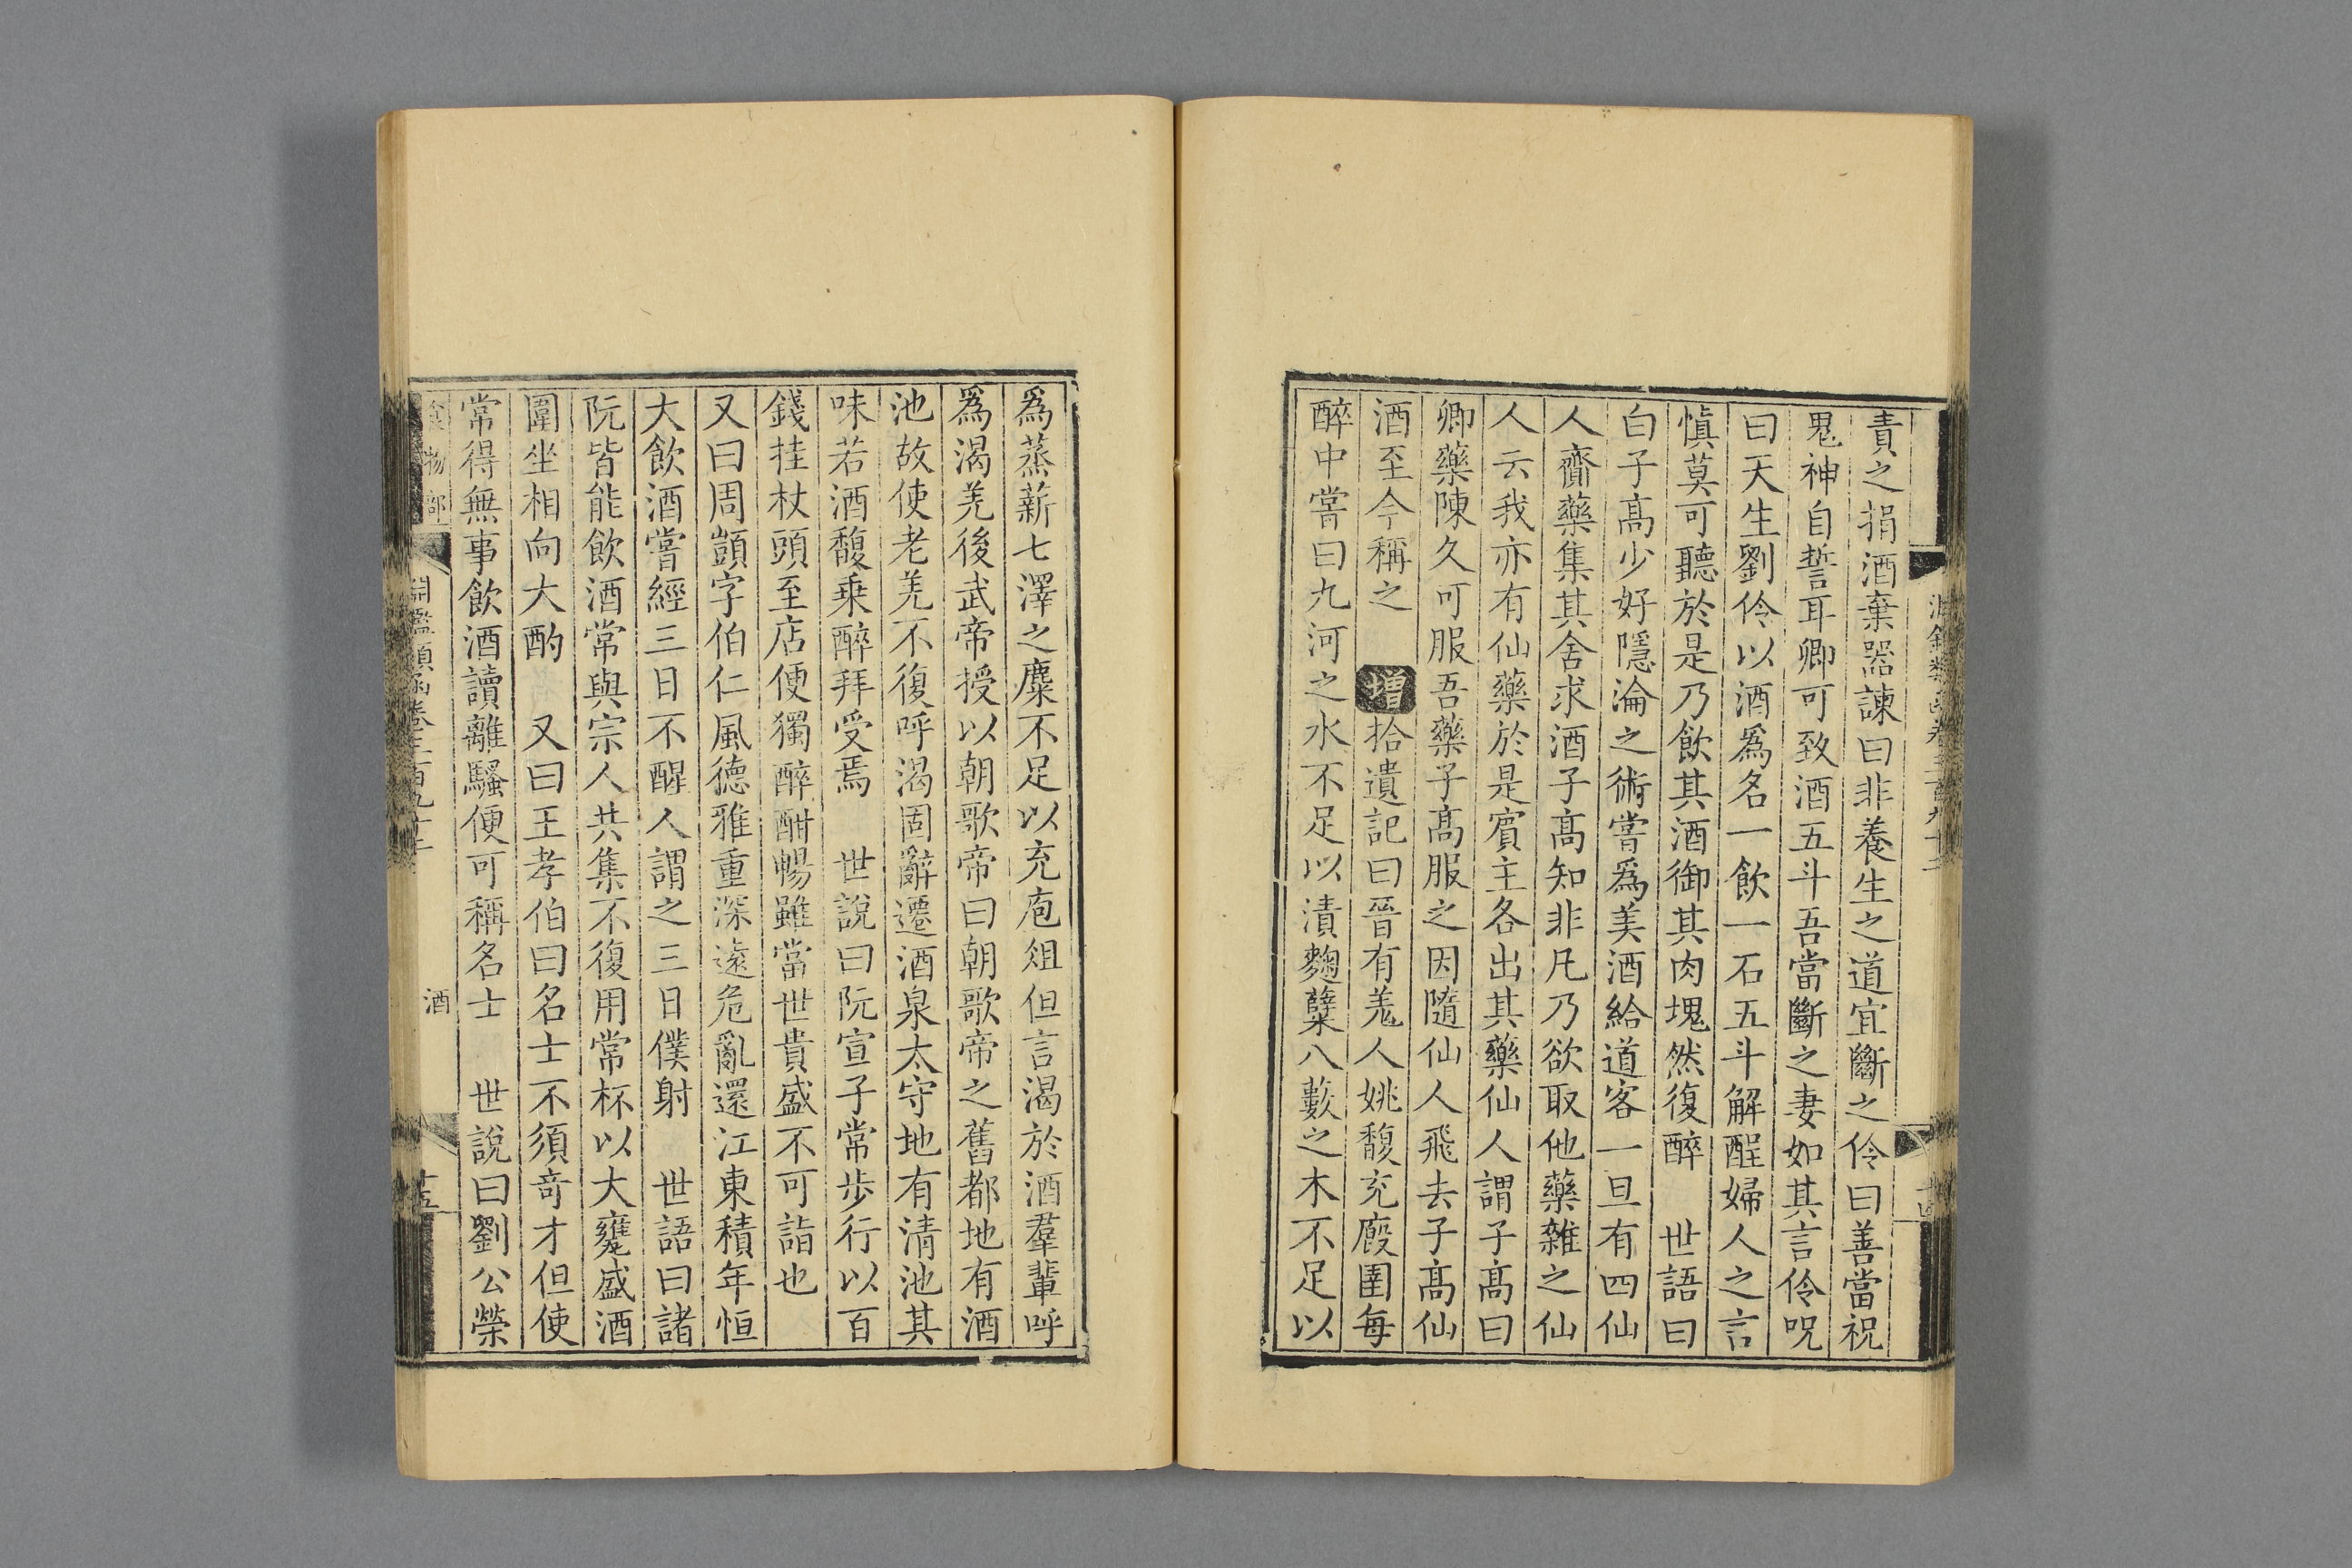 責之捐酒棄器諫曰非養生之道宜斷之伶曰善當祝
鬼神自誓耳卿可致酒五斗吾當斷之妻如其言伶呪
曰天生劉伶以酒爲名一飮一石五斗解酲婦人之言
愼莫可聽於是乃飮其酒御其肉塊然復醉　世語曰
白子髙少好隱淪之術嘗爲美酒給道客一旦有四仙
人齎藥集其舍求酒子髙知非凡乃欲取他藥雜之仙
人云我亦有仙藥於是賓主各出其藥仙人謂子髙曰
卿藥陳久可服吾藥子髙服之因隨仙人飛去子髙仙
酒至今稱之　增拾遺記曰晉有羌人姚馥充廏圉每
醉中嘗曰九河之水不足以漬麴蘖八藪之木不足以
爲蒸薪七澤之麋不足以充庖俎但言渴於酒羣輩呼
爲渴羌後武帝授以朝歌帝曰朝歌帝之舊都地有酒
池故使老羌不復呼渴固辭遷酒泉太守地有清池其
味若酒馥乗醉拜受焉　世說曰阮宣子常歩行以百
錢挂杖頭至店便獨醉酣暢雖當世貴盛不可詣也
又曰周顗字伯仁風德雅重深遠危亂還江東積年恒
大飮酒嘗經三日不醒人謂之三日僕射　世語曰諸
阮皆能飮酒常與宗人共集不復用常杯以大甕盛酒
圍坐相向大酌　又曰王孝伯曰名士不須奇才但使
常得無事飮酒讀離騷便可稱名士　世說曰劉公榮
食物部　淵鑑類函卷三百九十二　酒　十五